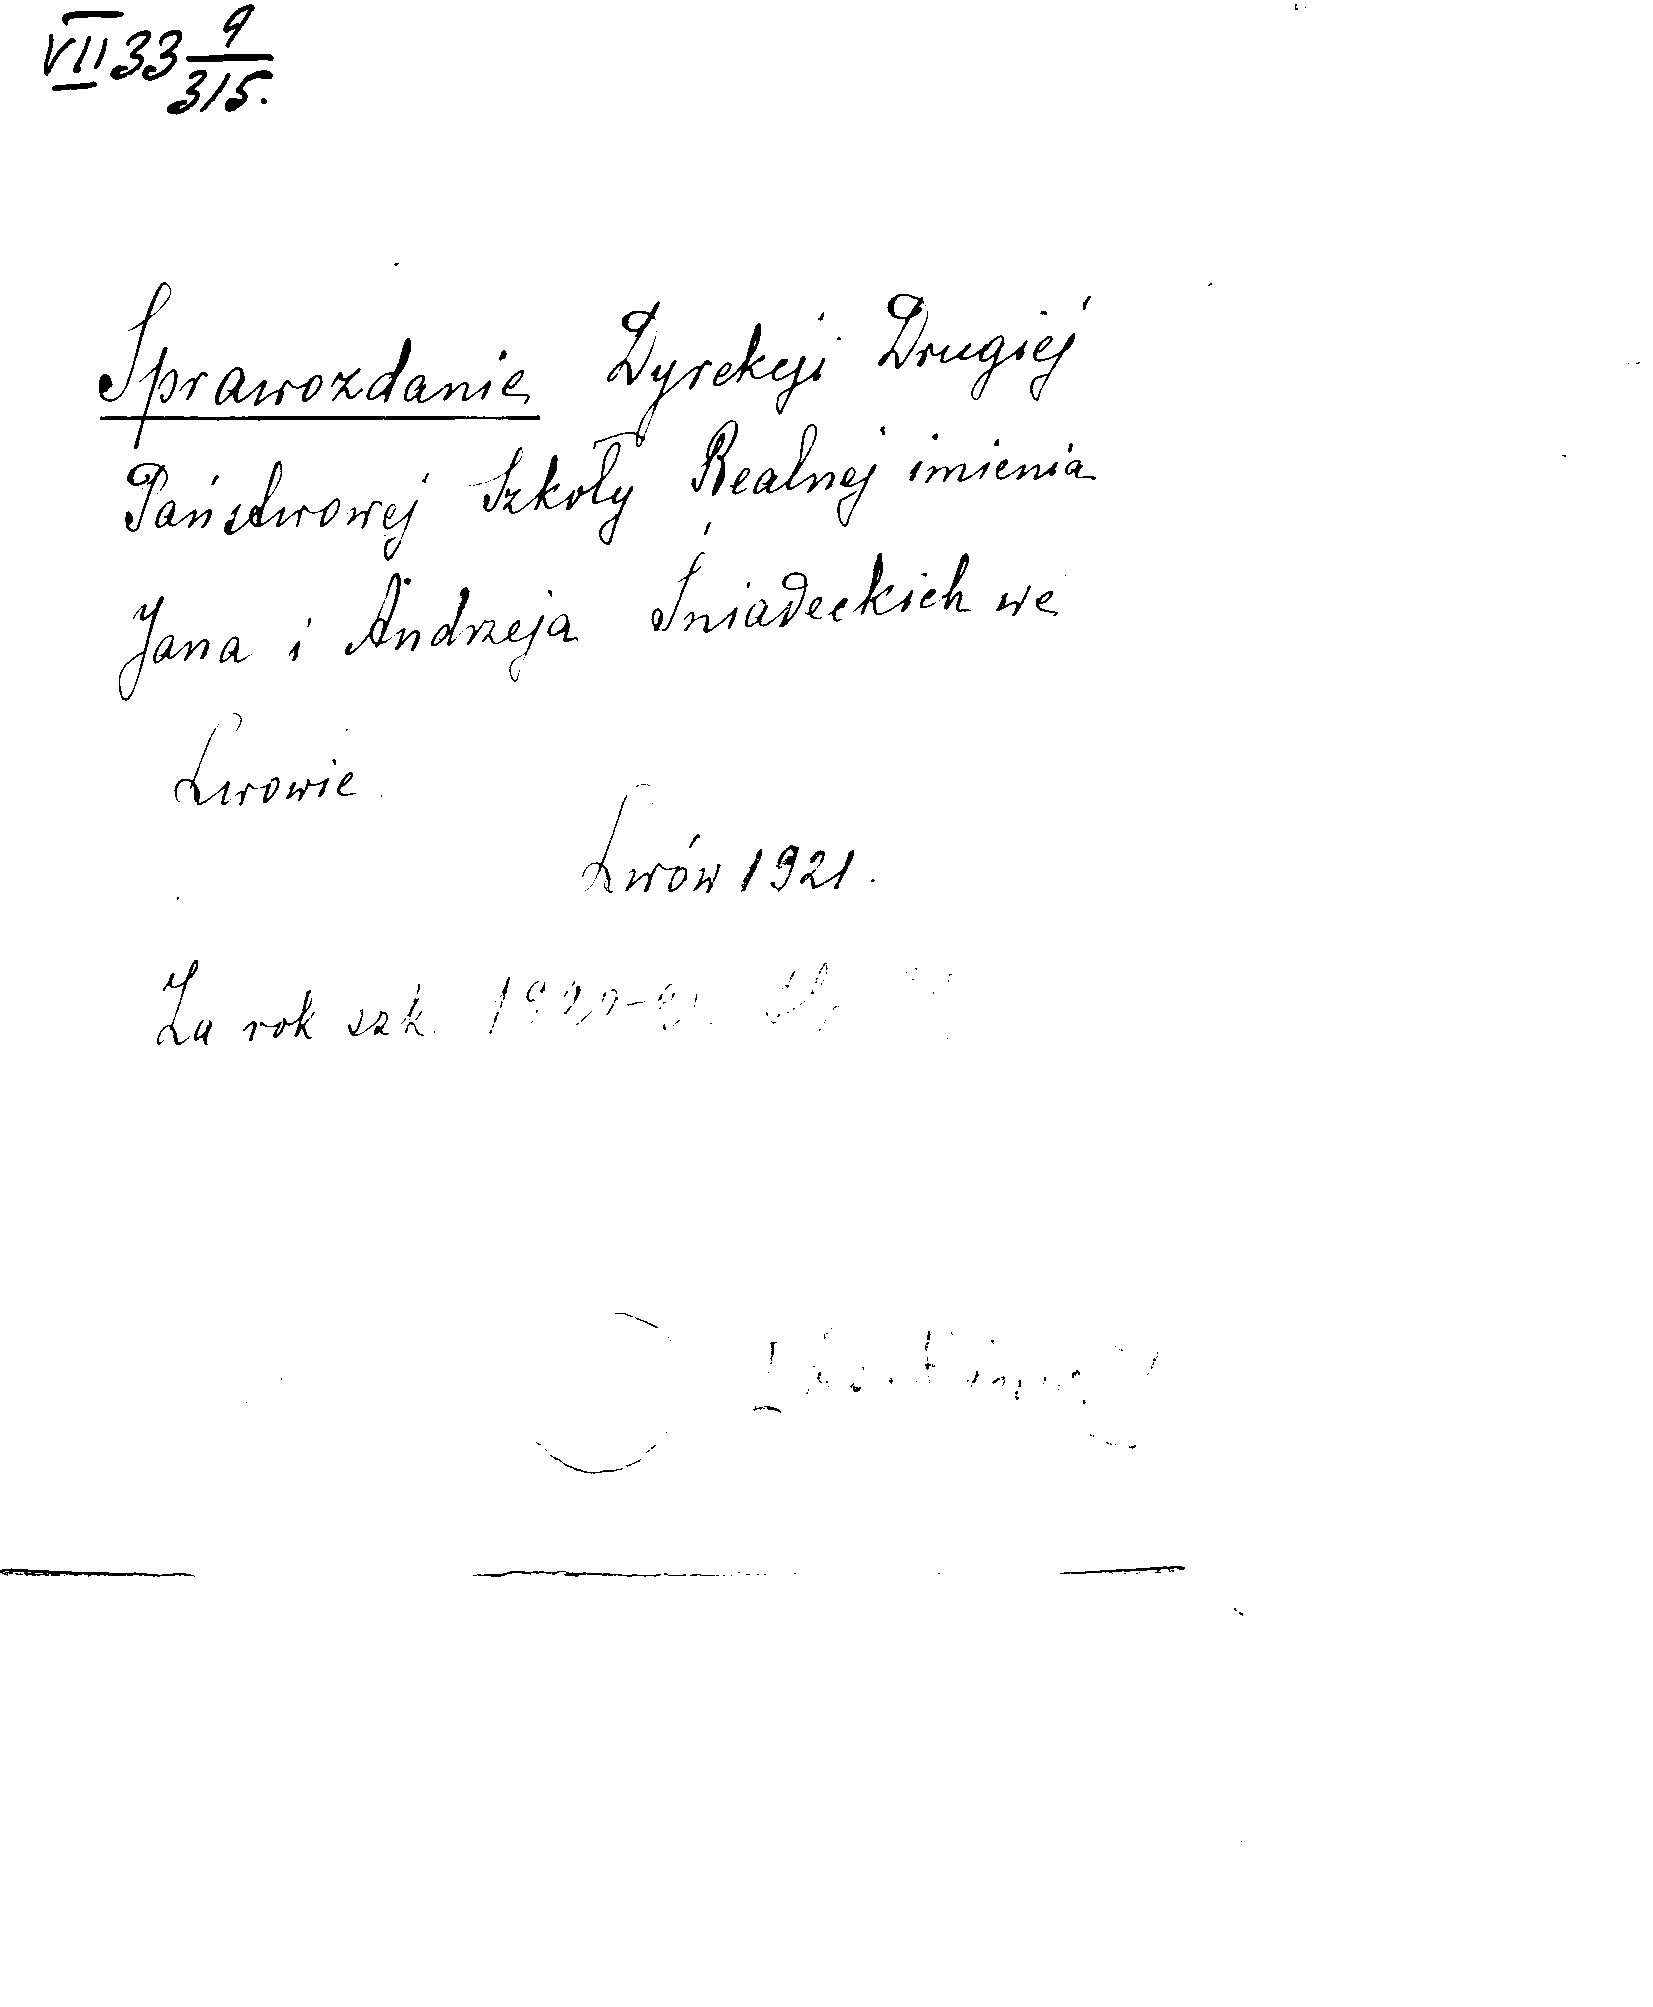 VII 33 9/315.
Sprawozdanie Dyrekcji Drugiej
Państwowej Szkoły Realnej imienia
Jana i Andrzeja Śniadeckich we
Lwowie.
Lwów 1921.
Za rok szk. 1920-21.